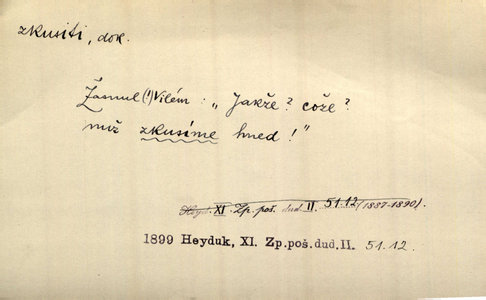 zkusiti, dok.
Žasnul (!) Vilém: „Jakže? cože?
nuž zkusíme hned!"
Heyd. XI. Zp. poš. dud. II. 51.12 (1887-1890).
1899 Heyduk, XI. Zp.poš.dud.II. 51.12.